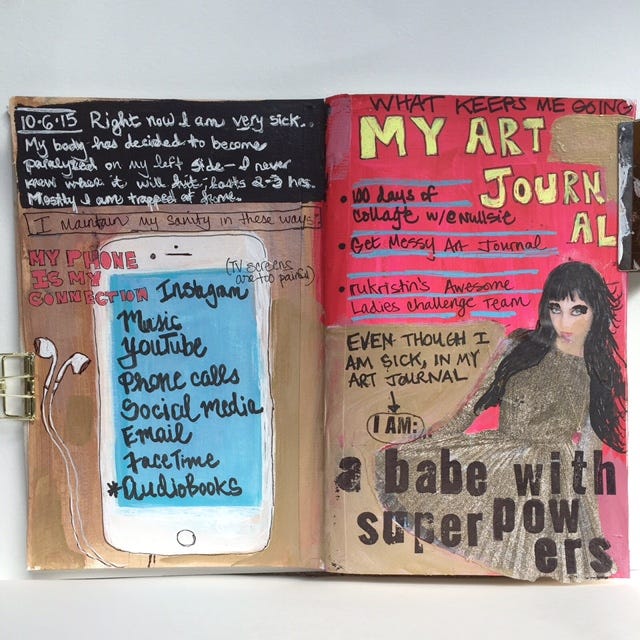 10-6-15 Right now I am very sick..
My body has decided to become
paralyzed on my left side - I never
know when it will hit; lasts 2-3 hrs.
Mostly I am trapped at home.
I maintain my sanity in these ways:
MY PHONE
IS MY
CONNECTION
(TV screens
are too painful)
Instagram
Music
YouTube
Phone calls
Social media
Email
FaceTime
*AudioBooks
WHAT KEEPS ME GOING
MY ART
JOURN
AL
• 100 days of
collage w/@nullsie
• Get Messy Art Journal
• rukristin's Awesome
Ladies Challenge Team
EVEN THOUGH I
AM SICK, IN MY
ART JOURNAL
I AM:
a babe with
super pow
ers